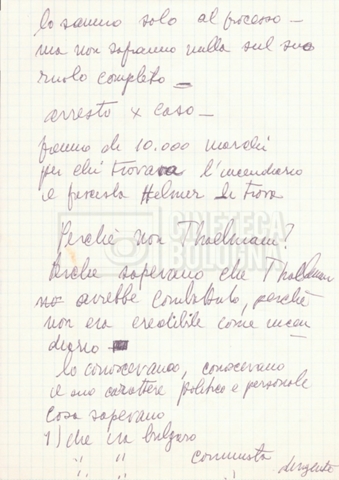 lo sanno solo al processo –
ma non sapranno nulla sul suo
ruolo completo –
arresto x caso –
premio di 10.000 marchi
per chi trovava l'incendiario
e Helmer lo trova
CINETECA
BOLOGNA
Perché non Thaelmam?
Perché sapevano che Thaelman
no avrebbe combattuto, perché
non era credibile come incen
diario –
lo conoscevano, conoscevano
il suo carattere politico e personale
Cosa sapevano
1) che era bulgaro
" " comunista
dirigente